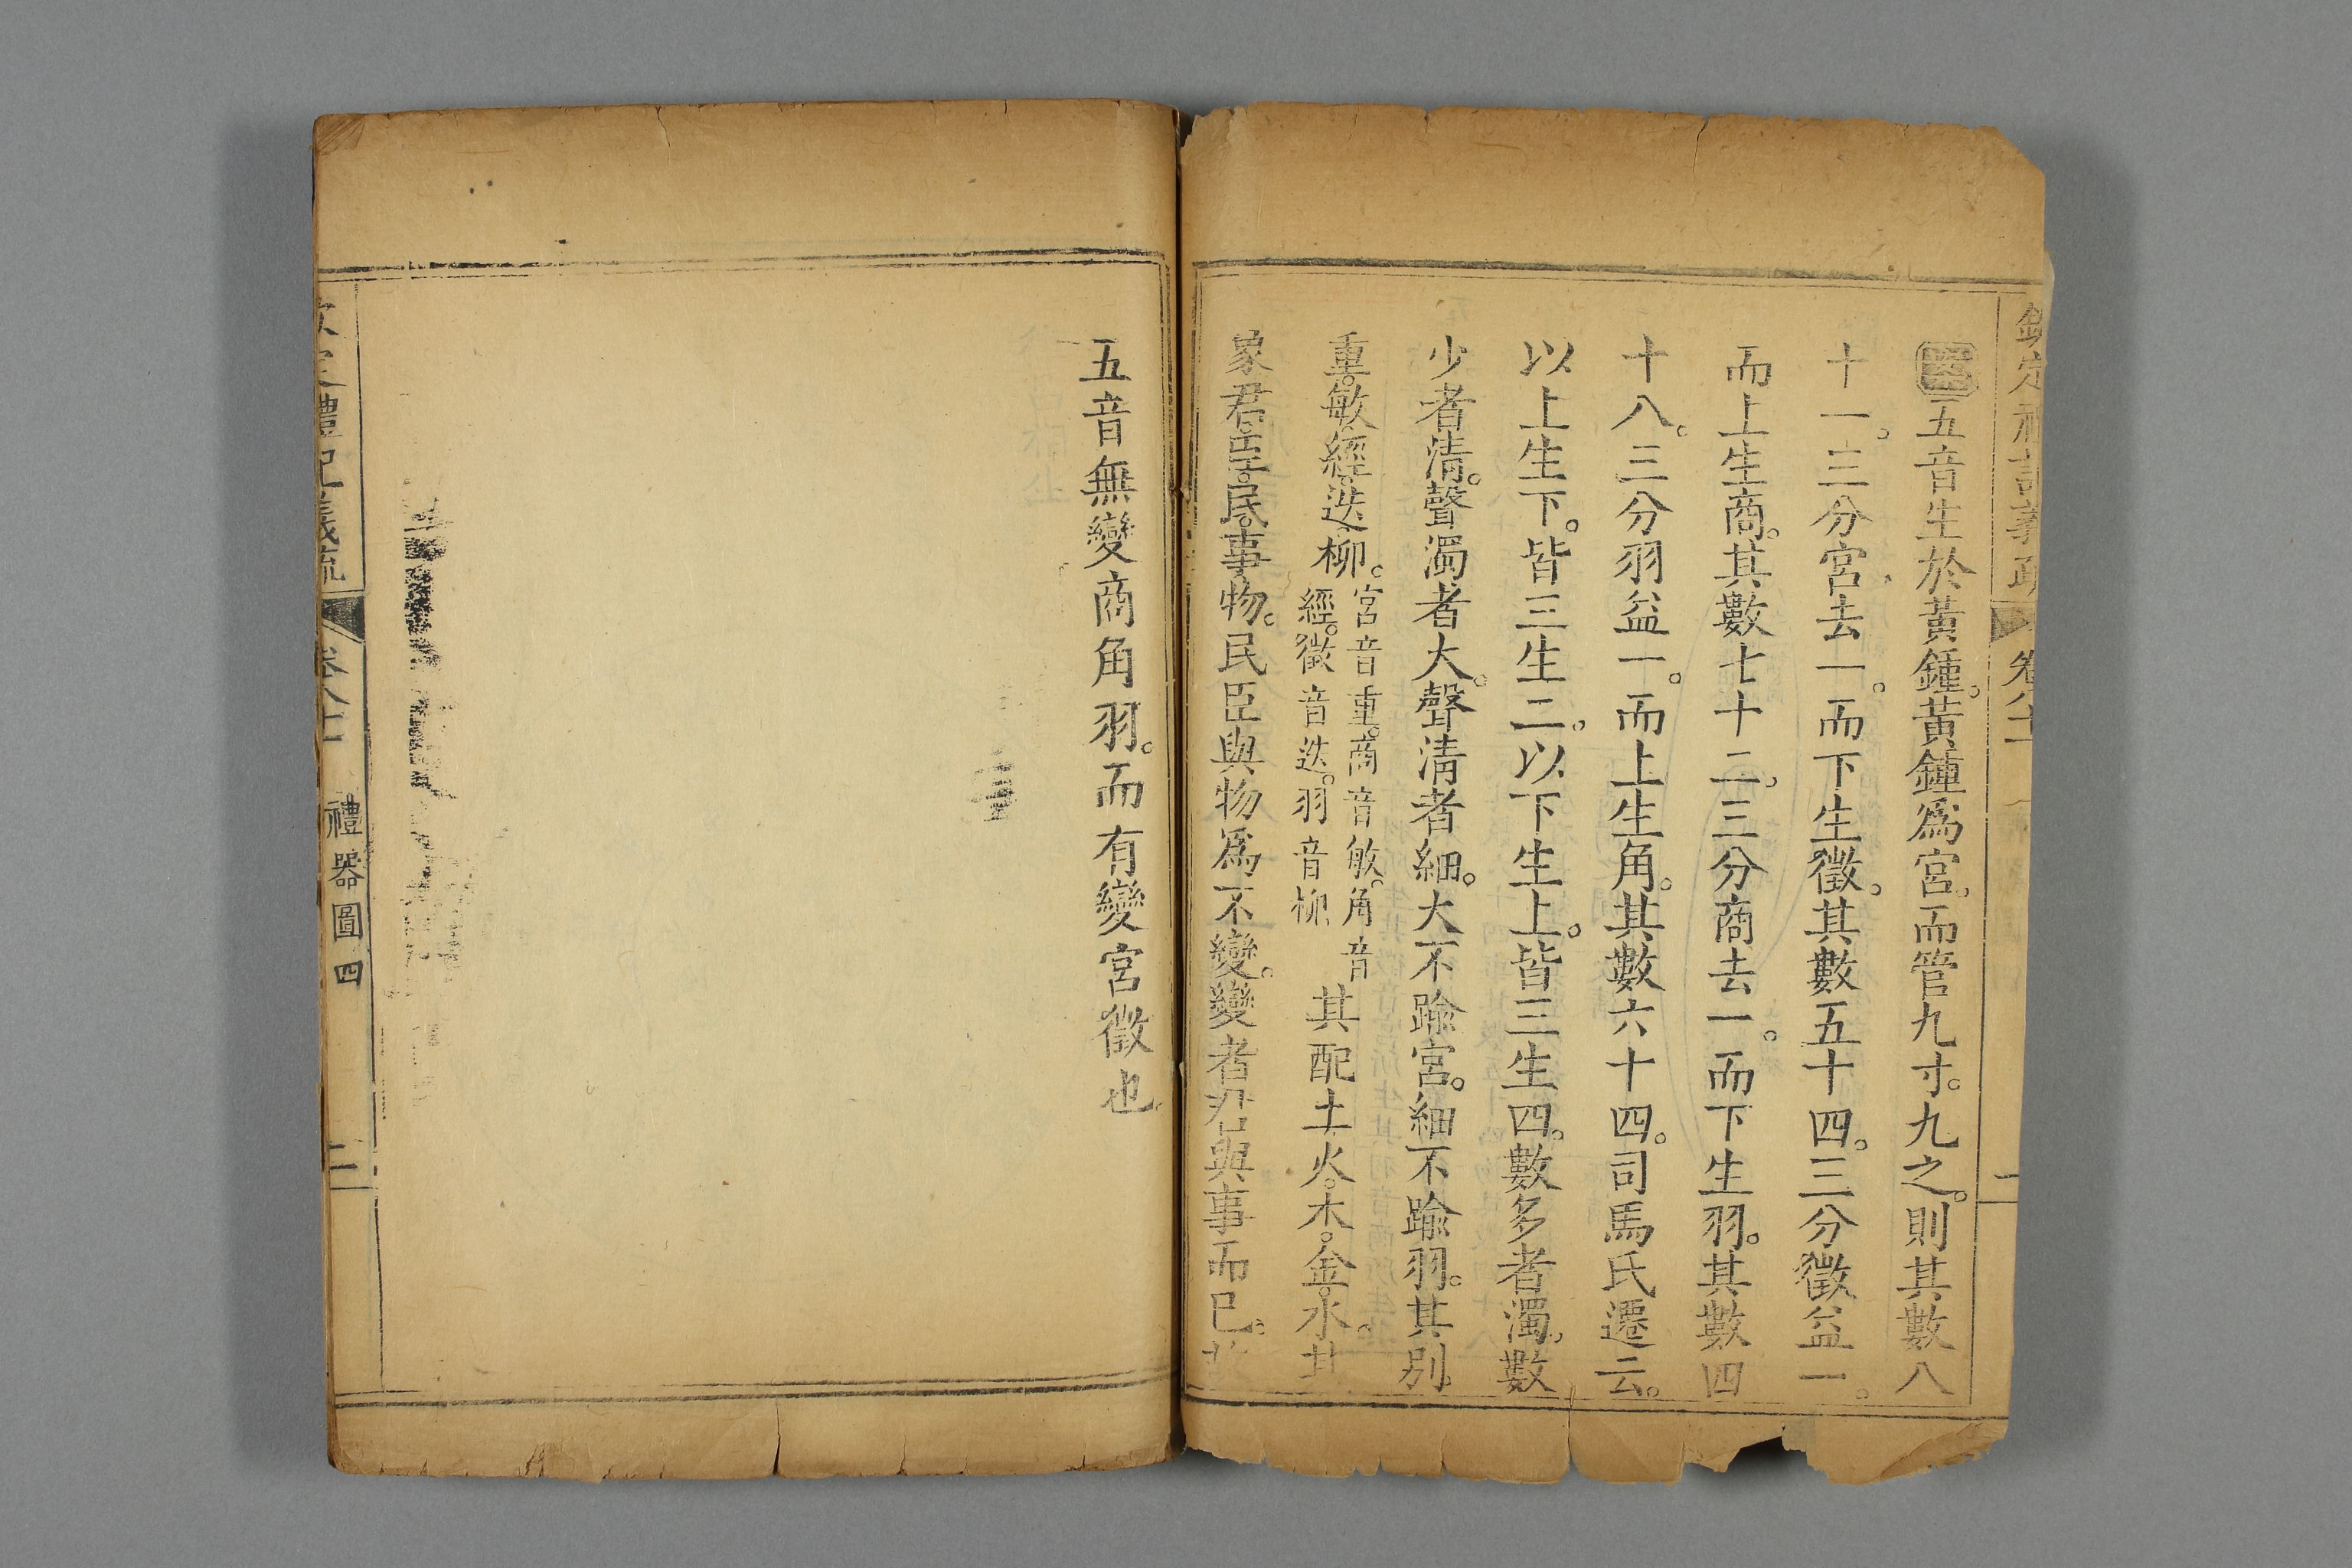 欽定禮記義疏 卷八十一 一
五音生於黃鍾。黃鍾爲宮。而管九寸。九之。則其數八
十一。三分宮去一。而下生徵。其數五十四。三分徵益一。
而上生商。其數七十二。三分商去一。而下生羽。其數四
十八。三分羽益一。而上生角。其數六十四。司馬氏遷云。
以上生下。皆三生二。以下生上。皆三生四。數多者濁。數
少者清。聲濁者大。聲清者細。大不踰宮。細不踰羽。其別。
重。敏。經。迭。柳。
宮音重。商音敏。角音
經。徵音迭。羽音柳
其配土。火。木。金。水。其
象君。臣。民。事。物。民臣與物爲不變。變者君與事而已。
五音無變商角羽。而有變宮徵也
欽定禮記義疏 卷八十一 禮器圖四 二